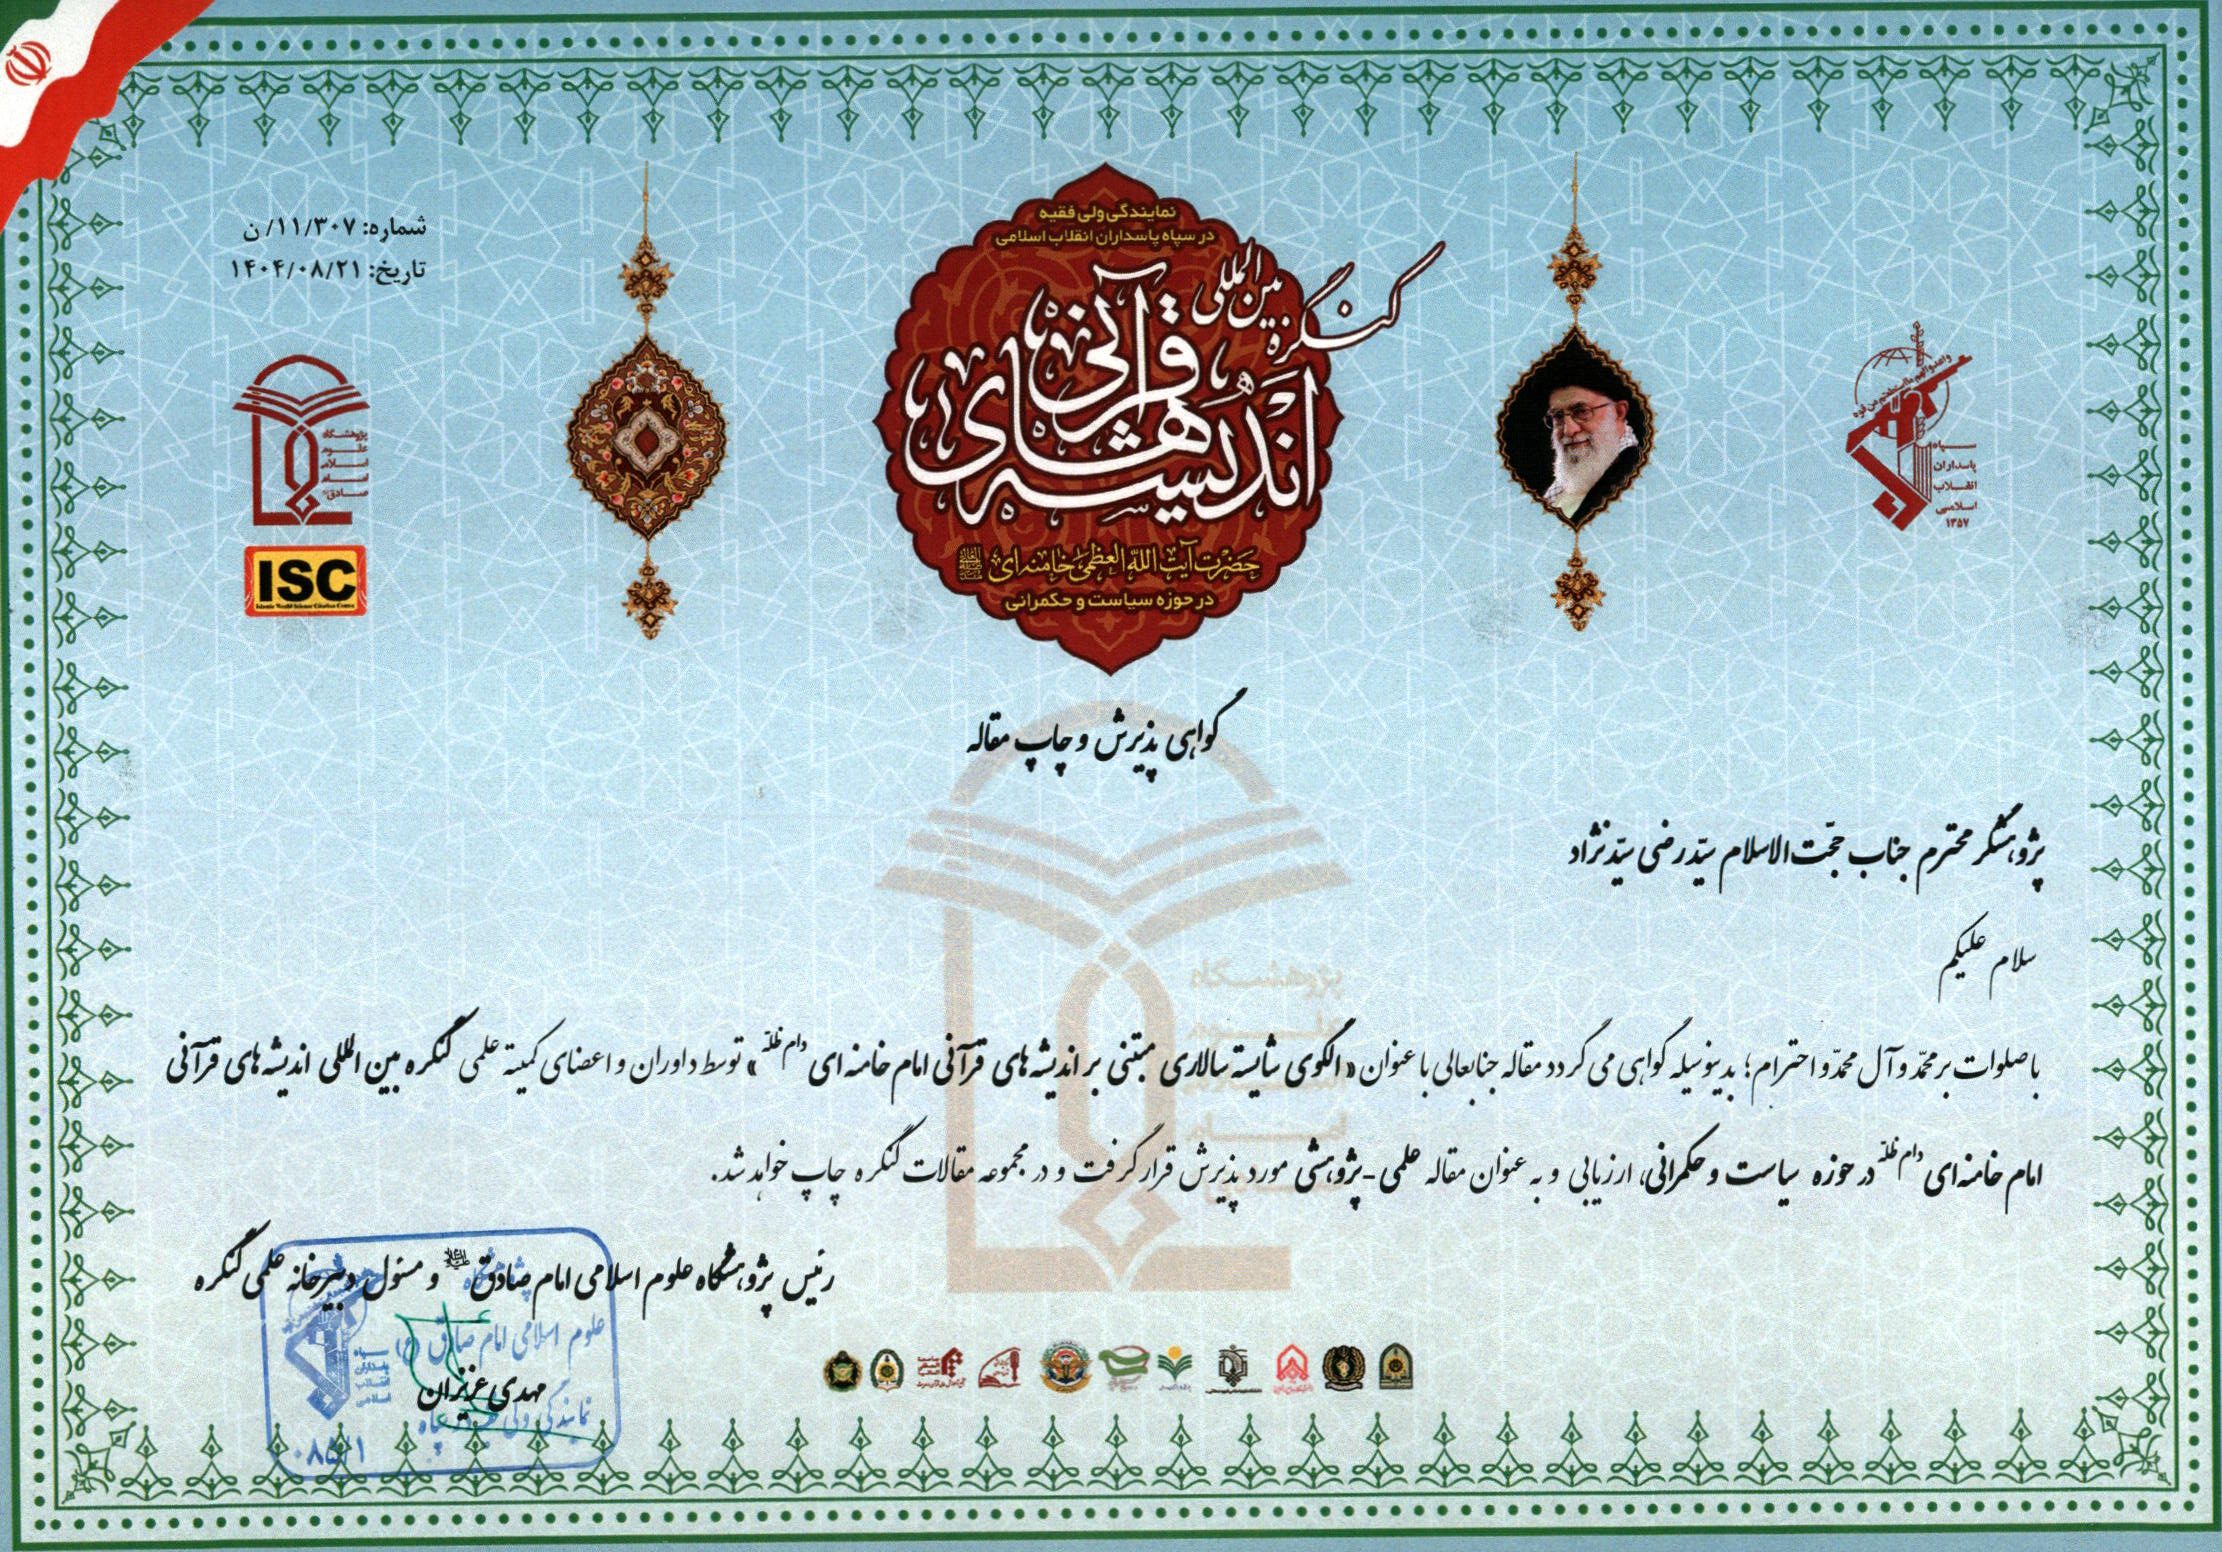 شماره: ۱۱/۳۰۷/ ن
تاریخ: ۱۴۰۴/۰۸/۲۱
نمایندگی ولی فقیه
در سپاه پاسداران انقلاب اسلامی
کنگره بین المللی
اندیشه های قرآنی
حضرت آیت الله العظمی خامنه ای
در حوزه سیاست و حکمرانی
سپاه
پاسداران
انقلاب
اسلامی
۱۳۵۷
پژوهشگاه
علوم
اسلامی
امام
صادق
ISC
Islamic World Science Citation Center
گواهی پذیرش و چاپ مقاله
پژوهشگر محترم جناب حجّت الاسلام سیّد رضی سیّد نژاد
سلام علیکم
با صلوات بر محمّد و آل محمّد و احترام؛ بدینوسیله گواهی می گردد مقاله جنابعالی با عنوان «الگوی شایسته سالاری مبتنی بر اندیشه های قرآنی امام خامنه ای دام ظلّه» توسط داوران و اعضای کمیته علمی کنگره بین المللی اندیشه های قرآنی
امام خامنه ای دام ظلّه در حوزه سیاست و حکمرانی، ارزیابی و به عنوان مقاله علمی-پژوهشی مورد پذیرش قرار گرفت و در مجموعه مقالات کنگره چاپ خواهد شد.
رئیس پژوهشگاه علوم اسلامی امام صادق و مسئول دبیرخانه علمی کنگره
علوم اسلامی امام صادق (ع)
سپاه
پاسداران
انقلاب
اسلامی
مهدی عزیزان
نمایندگی ولی فقیه سپاه
پژوهشگاه
علوم
اسلامی
امام